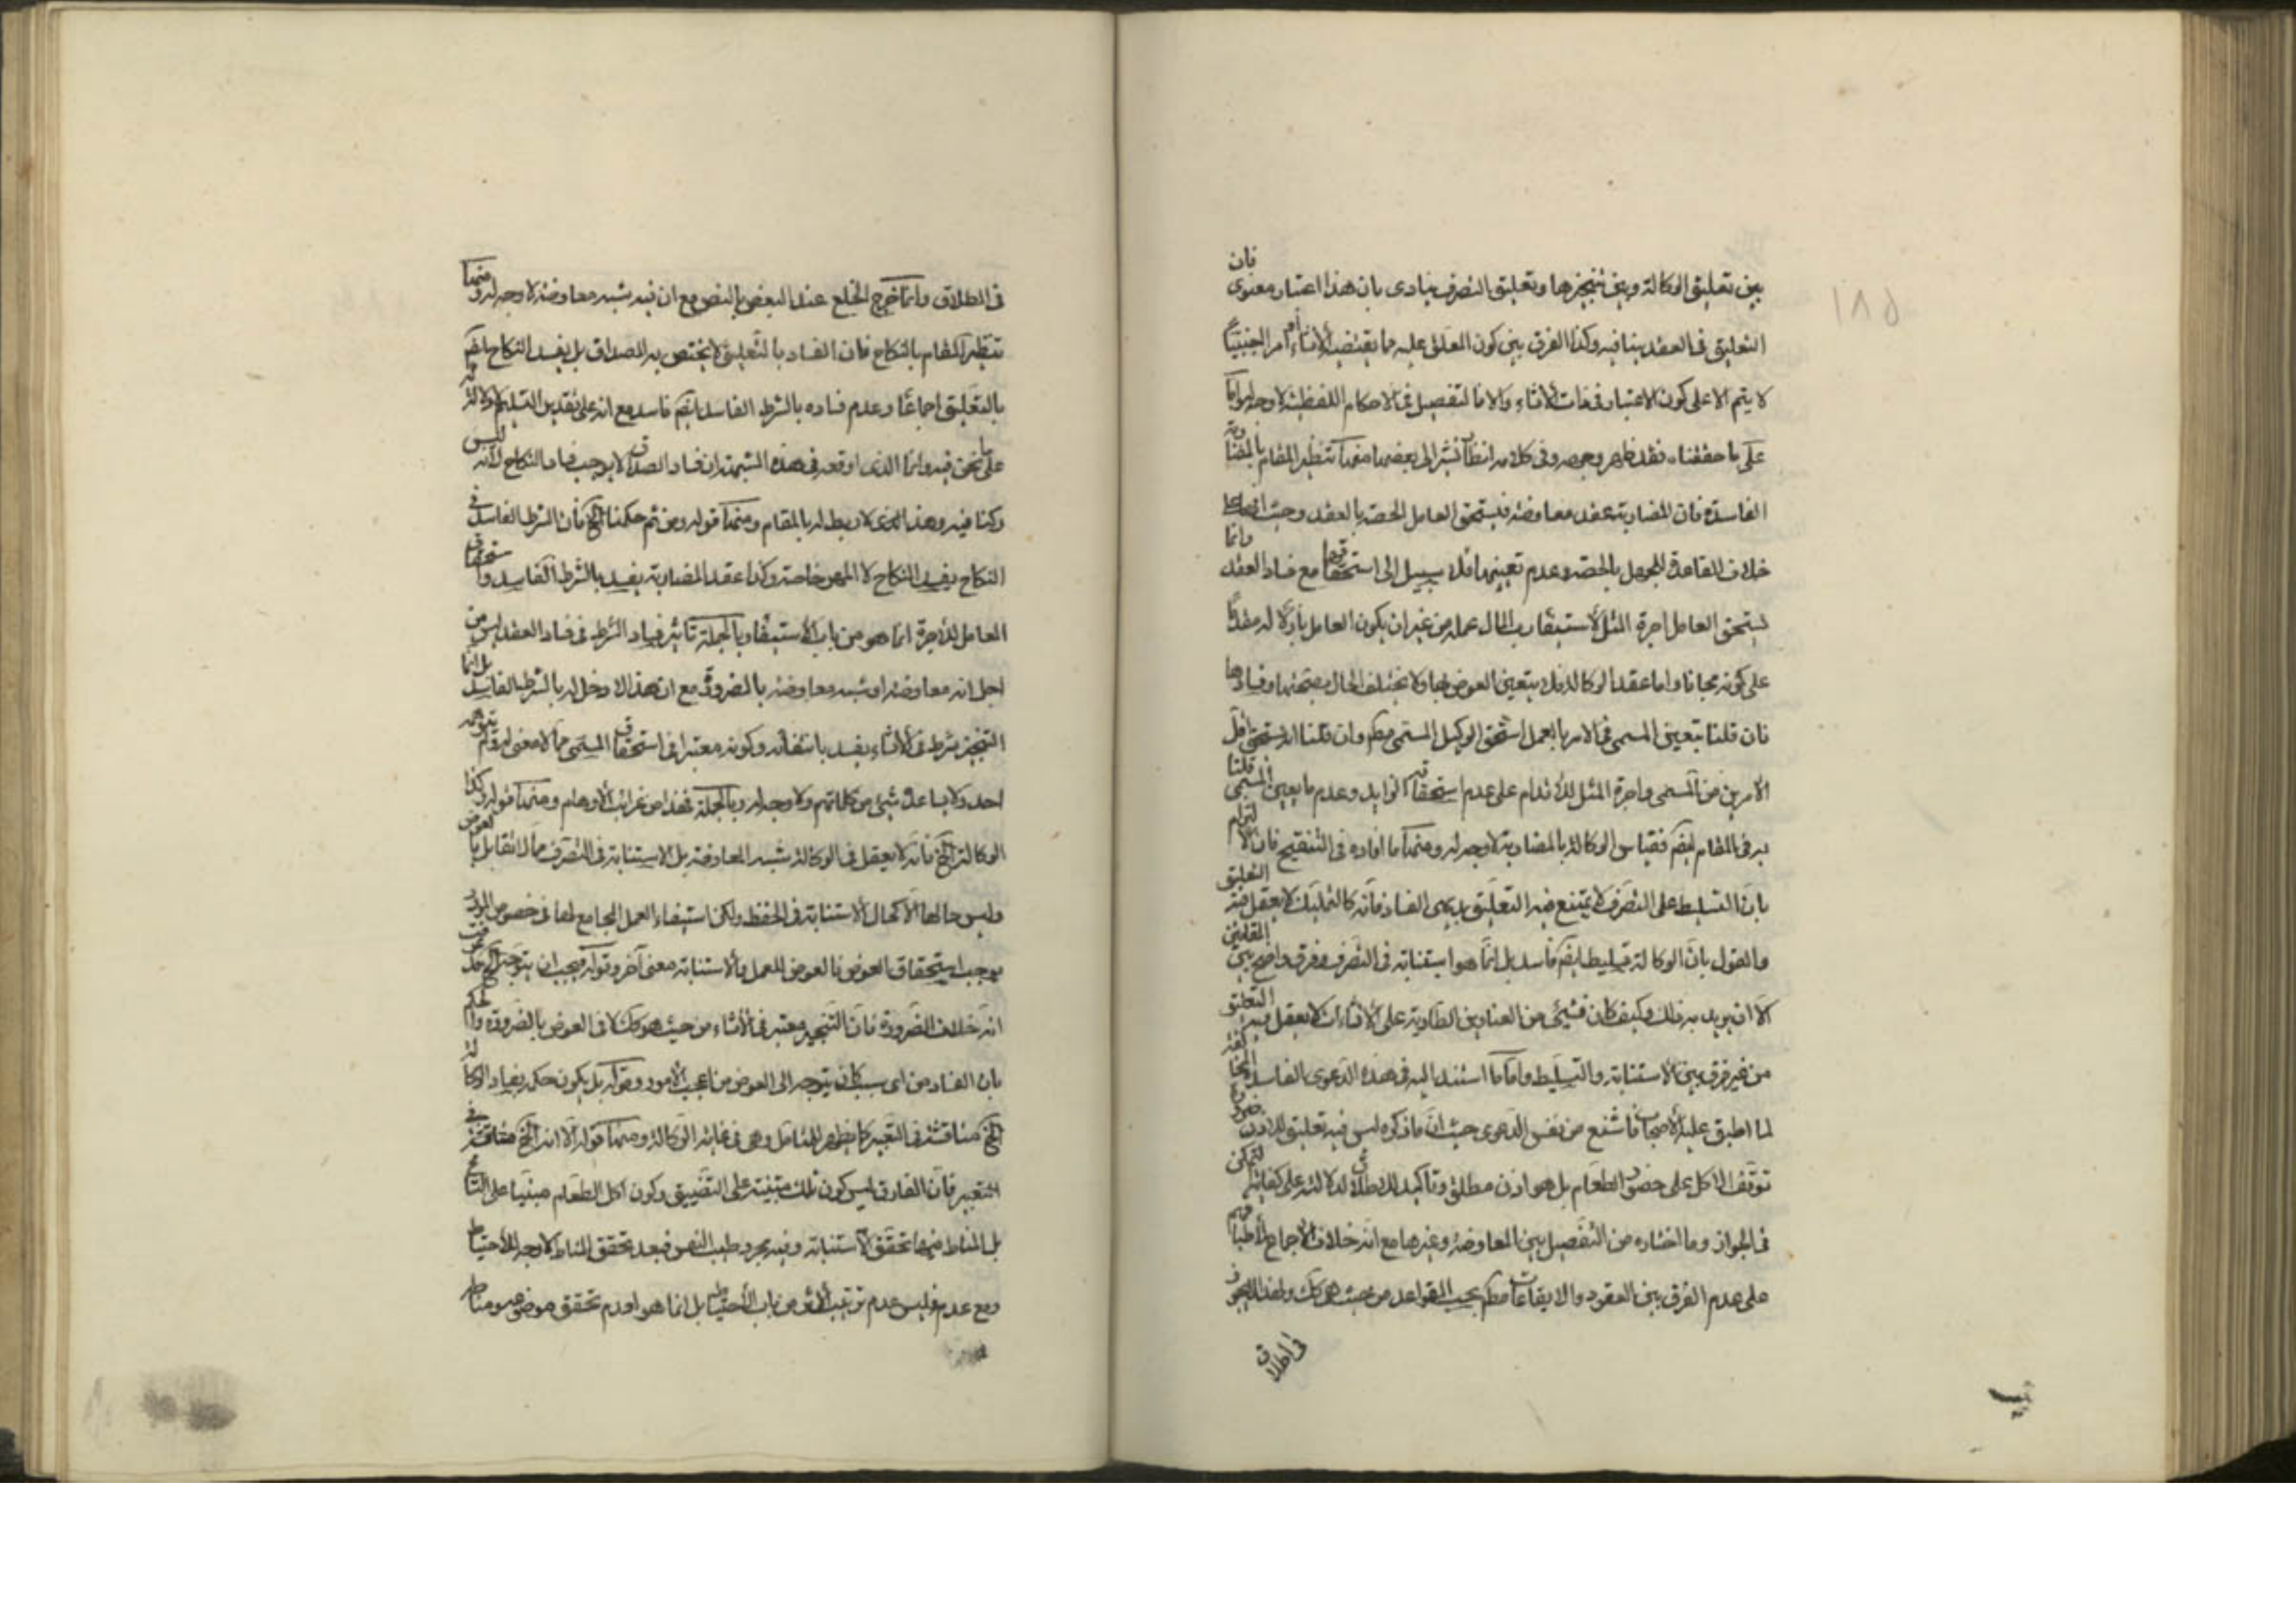 ١٨٥
بين تعليق الوكالة وبين تنجيزها وتعليق التصرف ينادى بان هذا اعتبار معنوى فان
التعليق فى العقد ينافيه وكذا الفرق بين كون المعلق عليه مما يقتضيه الانشاء أم امرا اجنبيا
لا يتم الا على كون الاعتبار فى الانشاء والا فالتفصيل فى الاحكام اللفظية لا وجه له واما
على ما حققناه فقد ظهر وجهه وفى كلامه انظار نشير الى بعضها منها تنظير المقام بالمضاربة
الفاسدة فان المضاربة عقد معاوضة فيستحق العامل الحصة بالعقد وحيث انها على
خلاف القاعدة للجهل بالحصة وعدم تعينها فلا سبيل الى استحقاقها مع فساد العقد وانما
يستحق العامل اجرة المثل لاستيفاء رب المال عمله من غير ان يكون العامل باذلا له مقدما
على كونه مجانا واما عقد الوكالة فلا يتعين العوض بها ولا يختلف الحال بصحتها وفسادها
فان قلنا بتعين المسمى فى الامر بالعمل استحق الوكيل المسمى مطم وان قلنا انه يستحق اقل
الامرين من المسمى واجرة المثل للاقدام على عدم استحقاقه الزايد وعدم ما يعين المسمى قلنا
به فى المقام ايضم فقياس الوكالة بالمضاربة لا وجه له ومنها ما افاده فى التنقيح فان الالتزام
بان التسليط على التصرف لا يمتنع فيه التعليق بديهى الفساد فانه كالتمليك لا يعقل فيه التعليق
والقول بان الوكالة تسليط ايضم فاسد بل انما هو استنابة فى التصرف وفرق واضح بين المقامين
الا ان يريد به ذلك وكيف كان فشىء من العناوين الطارية على الانشاءات لا يعقل فيه التعليق
من غير فرق بين الاستنابة والتسليط واما ما استند اليه فى هذه الدعوى الفاسدة المخالفة
لما اطبق عليه الاصحاب فاشنع من نفس الدعوى حيث ان ما ذكره ليس فيه تعليق للاذن
توقف الاكل على حضور الطعام بل هو اذن مطلق وتاكيد للاطلاق لدلالته على كفاية التمكن
فى الجواز وما اختاره من التفصيل بين المعاوضة وغيرها مع انه خلاف الاجماع لاطباقهم
على عدم الفرق بين العقود والايقاعات مطم بحسب القواعد من حيث هى كك ولهذا لا يجوز
فى الطلاق
فى الطلاق وانما خرج الخلع عند البعض بالنص مع ان فيه شبه معاوضة لا وجه له ومنها
تنظير المقام بالنكاح فان الفساد بالتعليق لا يختص به الصداق بل يفسد النكاح ايضم
بالتعليق اجماعا وعدم فساده بالشرط الفاسد ايضم فاسد مع انه على تقدير التسليم لا دلالة له
على ما نحن فيه وانما الذى اوقعه فى هذه الشبهة ان فساد الصداق لا يوجب فساد النكاح لانه ليس
ركنا فيه وهذا المعنى لا ربط له بالمقام ومنها قوله ومن ثم حكمنا الخ فان الشرط الفاسد فى
النكاح يفسد النكاح لا المهر خاصة وكذا عقد المضاربة يفسد بالشرط الفاسد واستحقاق
العامل للاجرة انما هو من باب الاستيفاء وبالجملة تاثير فساد الشرط فى فساد العقد ليس من
اجل انه معاوضة او شبه معاوضة بالضرورة مع ان هذا لا دخل له بالشرط الفاسد بل انما
التنجيز شرط فى الانشاء يفسد بانتفائه وكونه معتبرا فى استحقاق المسمى مما لا معنى له ولم يتوهمه
احد ولا يساعده شىء من كلماتهم ولا وجه له وبالجملة فهذا من غرائب الاوهام ومنها قوله وكذا
الوكالة الخ فانه لا يعقل فى الوكالة شبه المعاوضة بل الاستنابة فى التصرف مما لا تقابل بالعوض
وليس حالها الا كحال الاستنابة فى الحفظ ولكن استيفاء العمل المجامع لها فى خصوص المورد
يوجب استحقاق العوض فالعوض للعمل والاستنابة معنى آخر وقوله فيجب ان يتوجه الخ
انه خلاف الضرورة فان التنجيز معتبر فى الانشاء من حيث هو كك لا فى العوض بالضرورة والحكم
بان الفساد من اى سبب كان يتوجه الى العوض من اعجب الامور وقوله بل يكون حكمه بفساد الوكالة
الخ مناقشة فى التعبير كما يظهر للمتامل وهى فى غاية الركاكة ومنها قوله الا ان الخ مناقشة فى
التعبير فان الفارق ليس كون تلك مبنية على التضييق وكون اكل الطعام مبنيا على التسامح
بل المناط فيها تحقق الاستنابة وفيه مجرد طيب النفس فبعد تحقق المناط لا وجه للاحتياط
ومع عدمه فليس عدم ترتيب الاثر من باب الاحتياط بل انما هو لعدم تحقق موضوعه ومناطه